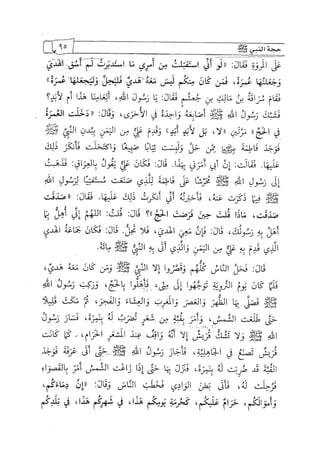 حجة النبي ﷺ ٩٥
على المَرْوَةِ فَقَالَ: «لَو أَنِّي اسْتَقْبَلْتُ مِن أَمْرِي مَا اسْتَدْبَرْتُ لَم أَسُقِ الهَدْيَ
وَجَعَلْتُهَا عُمْرَةً، فَمَن كَانَ مِنكُم لَيسَ مَعَهُ هَديٌ فَلْيَحِلَّ وَليَجعَلهَا عُمرَةً»
فَقَامَ سُرَاقَةُ بنُ مَالِكِ بنِ جُعشُمٍ فَقَالَ: يَا رَسُولَ اللهِ، أَلِعَامِنَا هَذَا أَم لِأَبَدٍ؟
فَشَبَّكَ رَسُولُ اللهِ ﷺ أَصَابِعَهُ وَاحِدَةً فِي الأُخرَى، وَقَالَ: «دَخَلَت العُمرَةُ
فِي الحَجِّ» مَرَّتَينِ «لَا، بَل لِأَبَدِ أَبَدٍ» وَقَدِمَ عَلِيٌّ مِن اليَمَنِ بِبُدنِ النَّبِيِّ ﷺ
فَوَجَدَ فَاطِمَةَ ﵂ مِمَّن حَلَّ وَلَبِسَت ثِيَابًا صَبِيغًا وَاكتَحَلَت فَأَنكَرَ ذَلِكَ
عَلَيهَا. فَقَالَت: إِنَّ أَبِي أَمَرَنِي بِهَذَا. قَالَ: فَكَانَ عَلِيٌّ يَقُولُ بِالعِرَاقِ: فَذَهَبتُ
إِلَى رَسُولِ اللهِ ﷺ مُحَرِّشًا عَلَى فَاطِمَةَ لِلَّذِي صَنَعَت مُستَفتِيًا لِرَسُولِ اللهِ
ﷺ فِيمَا ذَكَرَت عَنهُ، فَأَخبَرتُهُ أَنِّي أَنكَرتُ ذَلِكَ عَلَيهَا. فَقَالَ: «صَدَقَت
صَدَقَت، مَاذَا قُلتَ حِينَ فَرَضتَ الحَجَّ»؟ قَالَ: قُلتُ: اللهُمَّ إِنِّي أُهِلُّ بِمَا
أَهَلَّ بِهِ رَسُولُكَ. قَالَ: فَإِنَّ مَعِيَ الهَديَ، فَلَا تَحِلُّ. قَالَ: فَكَانَ جَمَاعَةُ الهَديِ
الَّذِي قَدِمَ بِهِ عَلِيٌّ مِن اليَمَنِ وَالَّذِي أَتَى بِهِ النَّبِيُّ ﷺ مِائَةً.
قَالَ: فَحَلَّ النَّاسُ كُلُّهُم وَقَصَّرُوا إِلَّا النَّبِيَّ ﷺ وَمَن كَانَ مَعَهُ هَديٌ،
فَلَمَّا كَانَ يَومُ التَّروِيَةِ تَوَجَّهُوا إِلَى مِنًى، فَأَهَلُّوا بِالحَجِّ، وَرَكِبَ رَسُولُ اللهِ
ﷺ فَصَلَّى بِهَا الظُّهرَ وَالعَصرَ وَالمَغرِبَ وَالعِشَاءَ وَالفَجرَ، ثُمَّ مَكَثَ قَلِيلًا
حَتَّى طَلَعَت الشَّمسُ، وَأَمَرَ بِقُبَّةٍ مِن شَعَرٍ تُضرَبُ لَهُ بِنَمِرَةَ، فَسَارَ رَسُولُ
اللهِ ﷺ وَلَا تَشُكُّ قُرَيشٌ إِلَّا أَنَّهُ وَاقِفٌ عِندَ المَشعَرِ الحَرَامِ، كَمَا كَانَت
قُرَيشٌ تَصنَعُ فِي الجَاهِلِيَّةِ، فَأَجَازَ رَسُولُ اللهِ ﷺ حَتَّى أَتَى عَرَفَةَ فَوَجَدَ
القُبَّةَ قَد ضُرِبَت لَهُ بِنَمِرَةَ، فَنَزَلَ بِهَا حَتَّى إِذَا زَاغَت الشَّمسُ أَمَرَ بِالقَصوَاءِ
فَرُحِلَت لَهُ، فَأَتَى بَطنَ الوَادِي فَخَطَبَ النَّاسَ وَقَالَ: «إِنَّ دِمَاءَكُم،
وَأَموَالَكُم، حَرَامٌ عَلَيكُم، كَحُرمَةِ يَومِكُم هَذَا، فِي شَهرِكُم هَذَا، فِي بَلَدِكُم